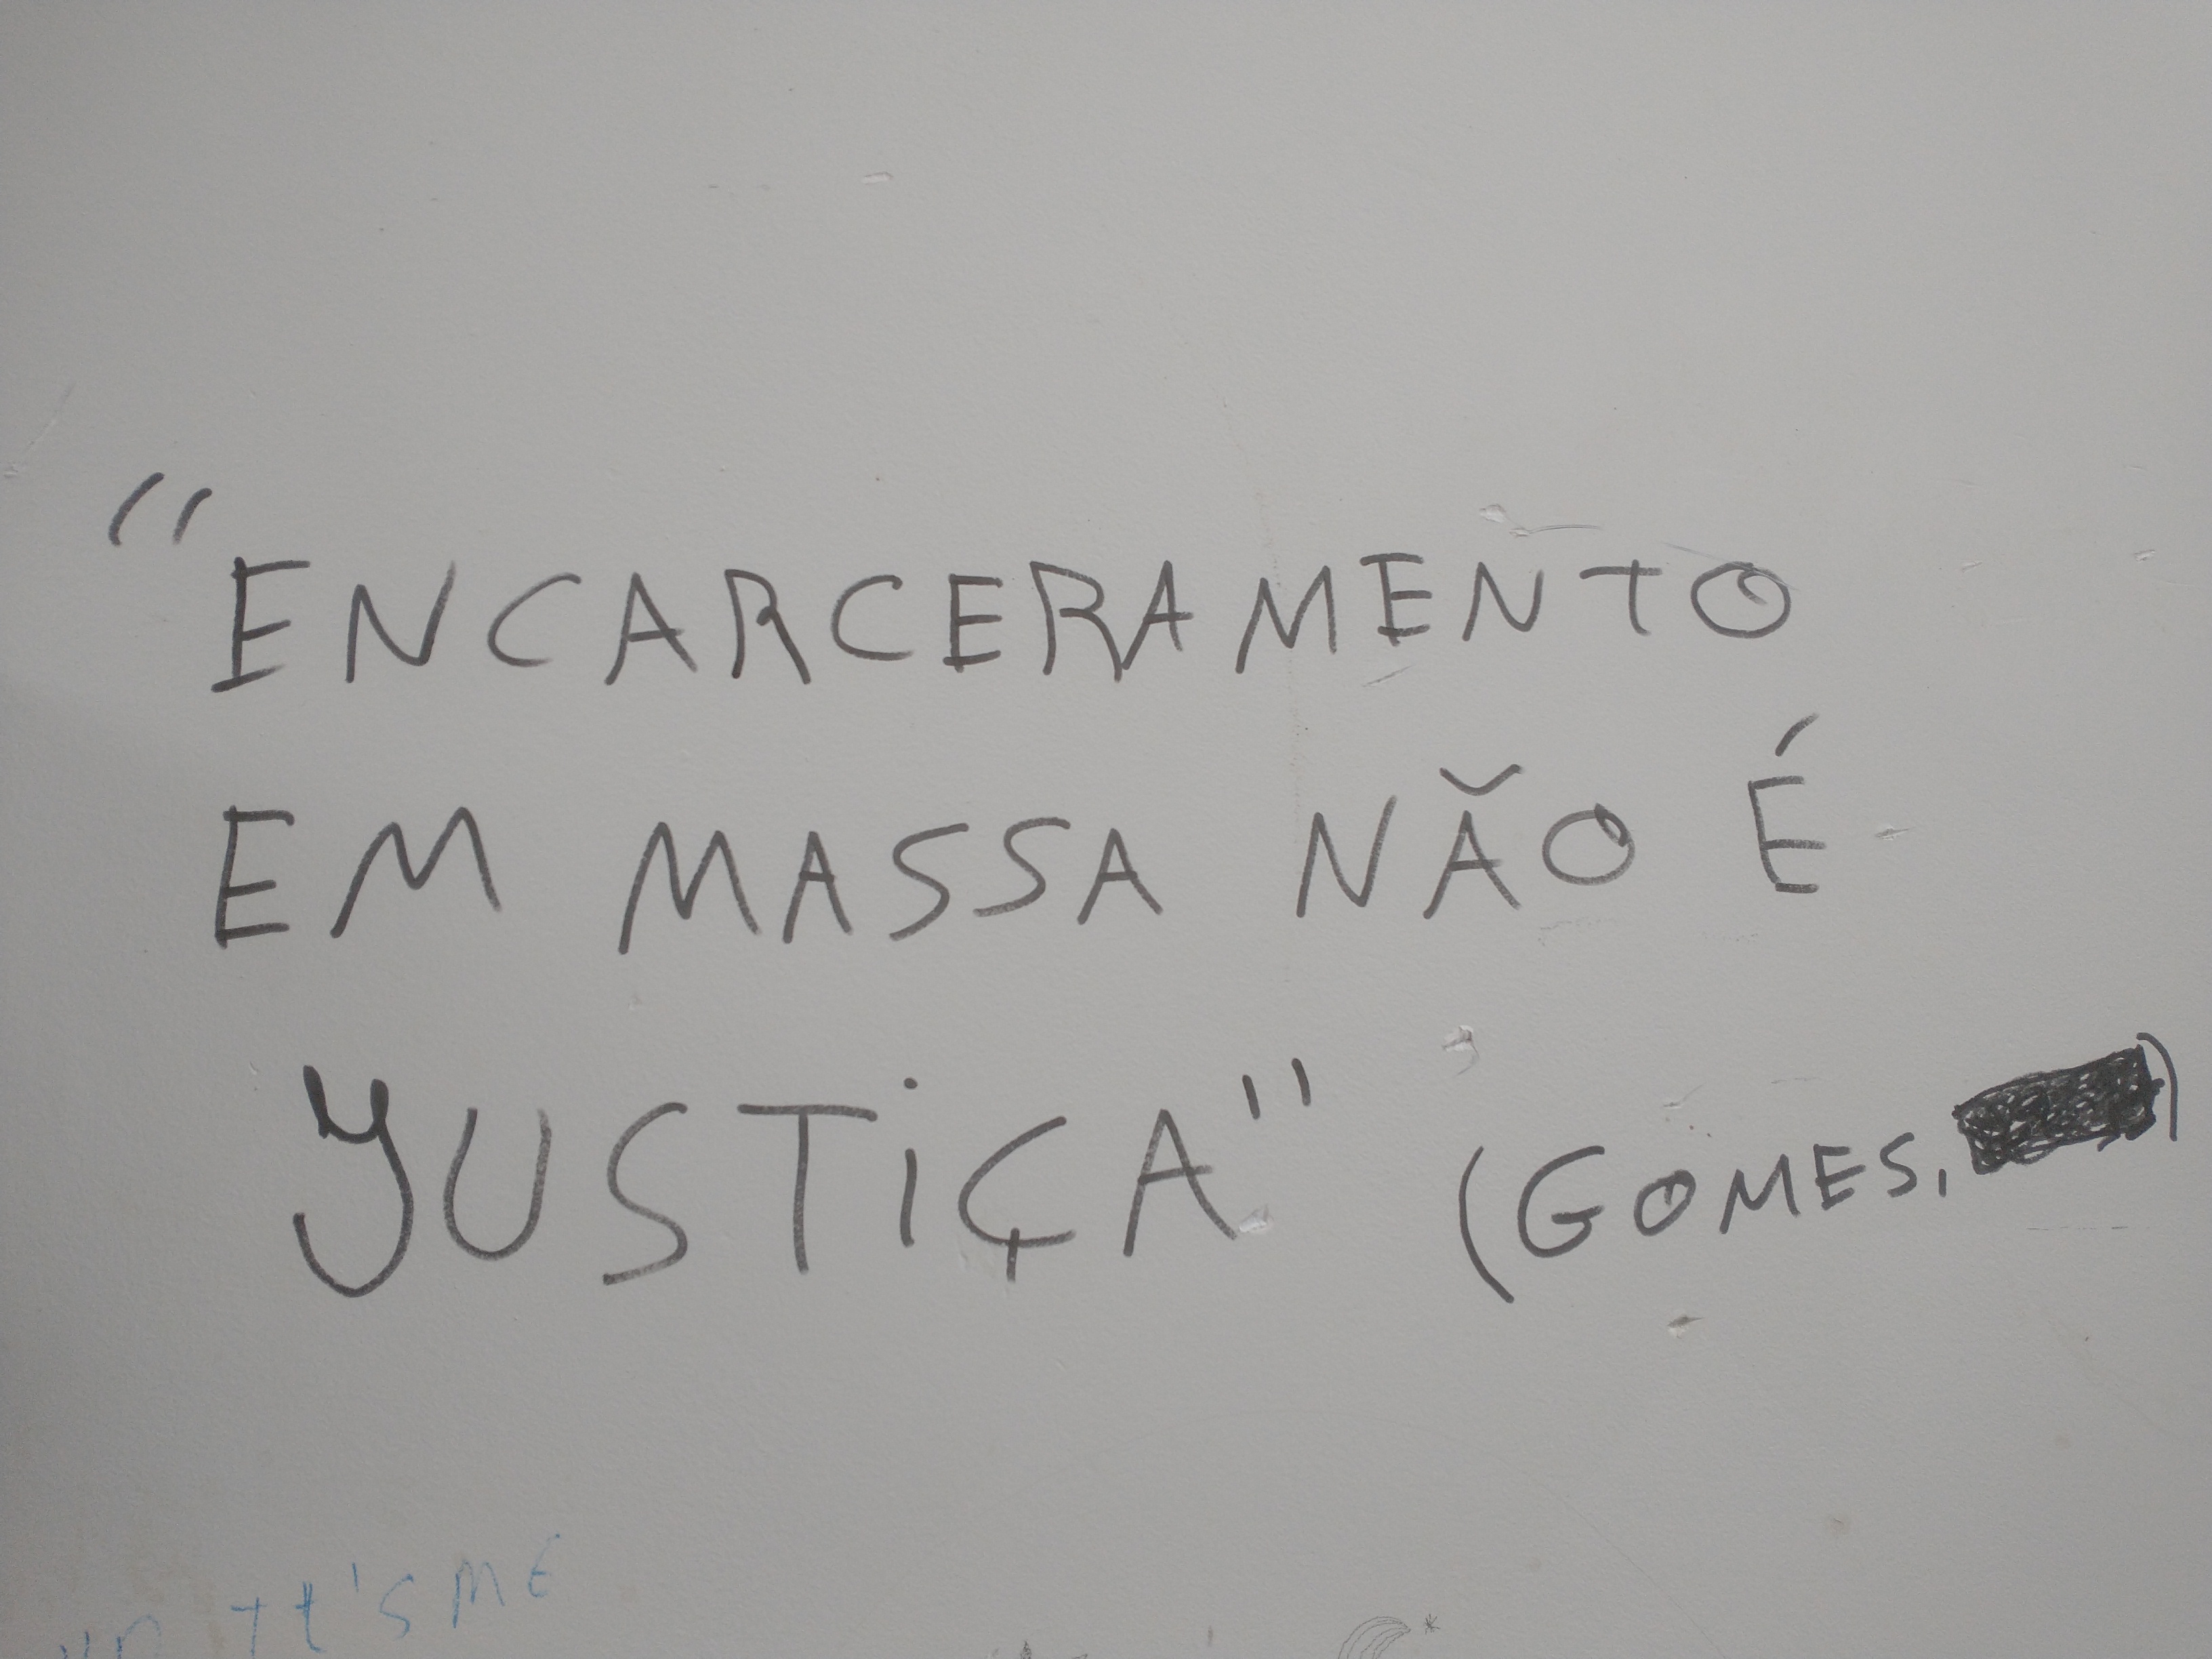 "ENCARCERAMENTO
EM MASSA NÃO É
JUSTIÇA" (GOMES,      )
IT'S ME